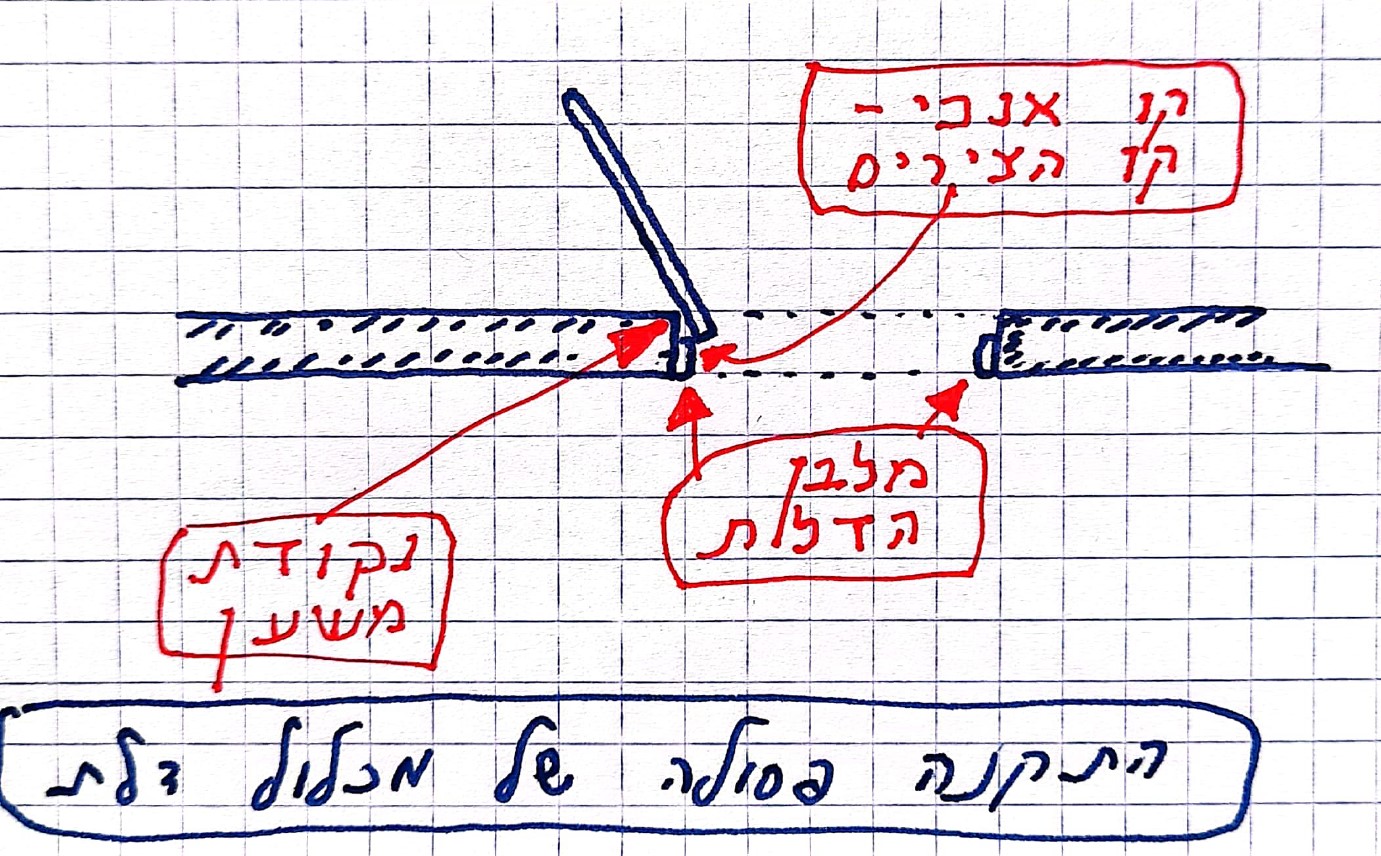 קו אנכי -
קו הצירים
מלבן
הדלת
נקודת
משען
התקנה פסולה של מכלול דלת